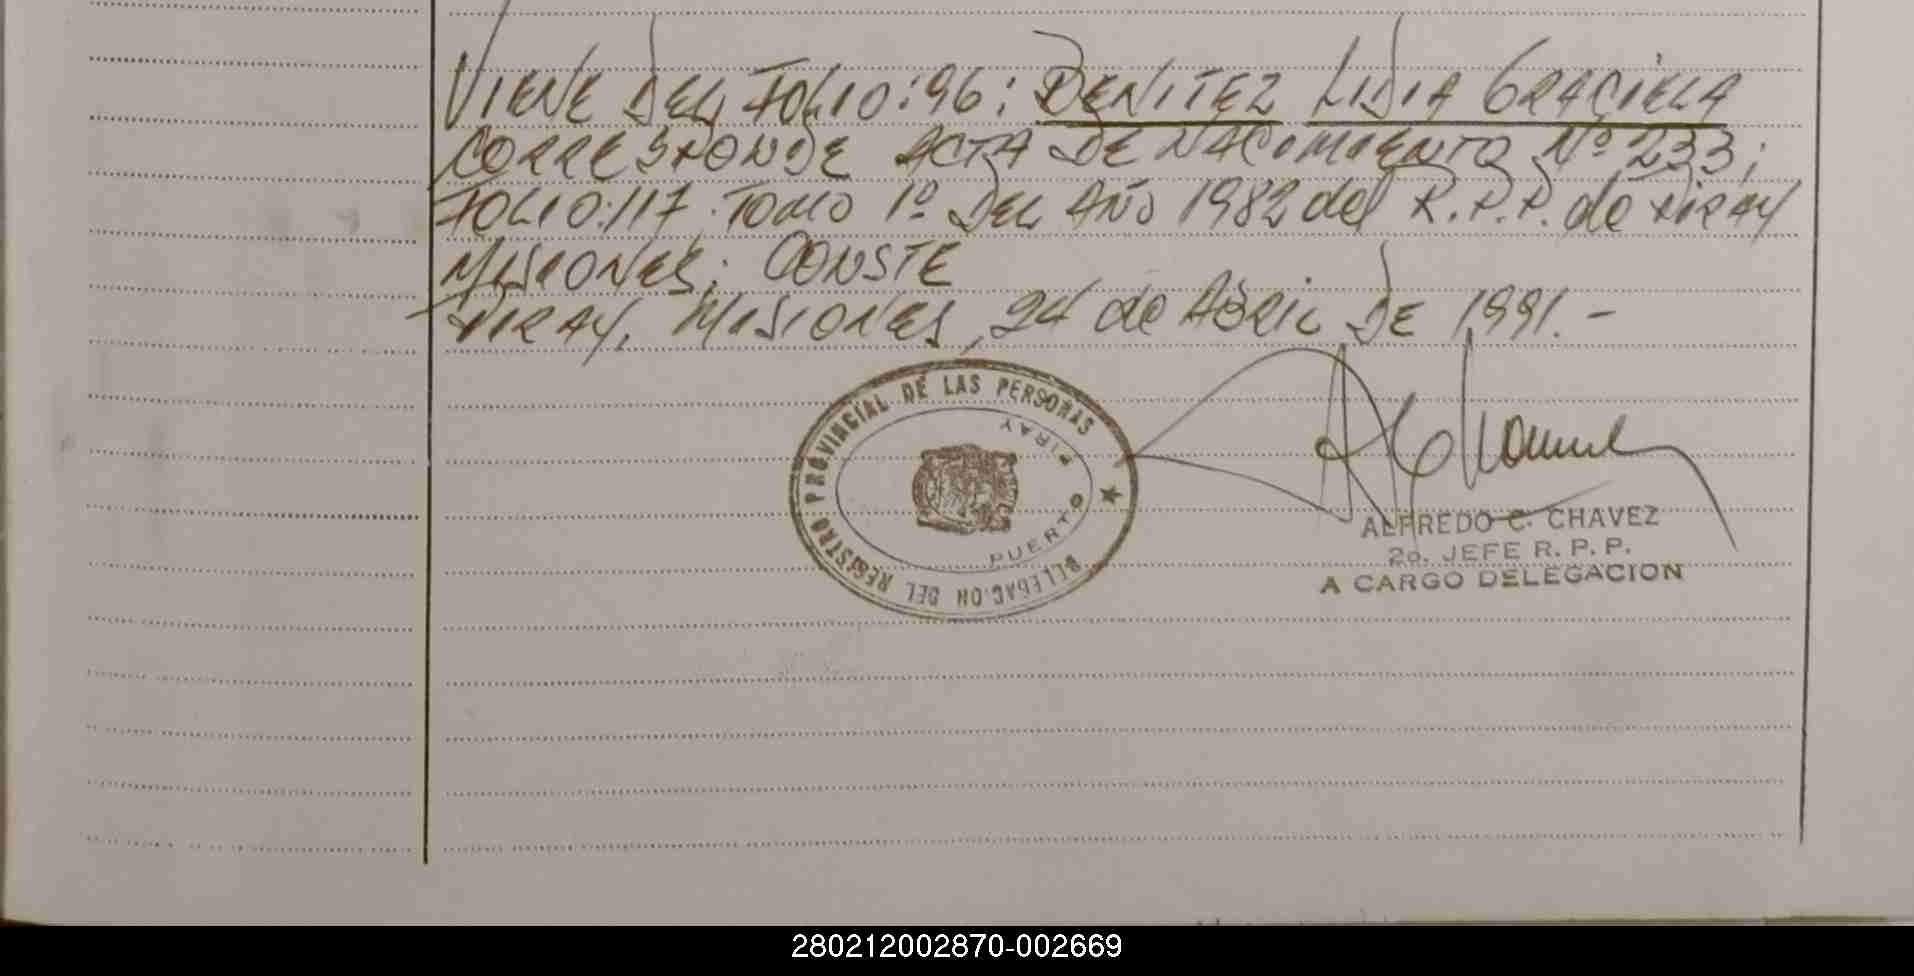 VIENE DEL FOLIO: 96: BENITEZ LIDIA GRACIELA
CORRESPONDE ACTA DE NACIMIENTO Nº 233;
FOLIO: 117. TOMO 1º DEL AÑO 1982 del R.P.P. de PIRAY
MISIONES; CONSTE
PIRAY, MISIONES, 24 de Abril DE 1991.-
DELEGACION DEL REGISTRO PROVINCIAL DE LAS PERSONAS
PUERTO PIRAY
ALFREDO C. CHAVEZ
2o. JEFE R. P. P.
A CARGO DELEGACION
280212002870-002669